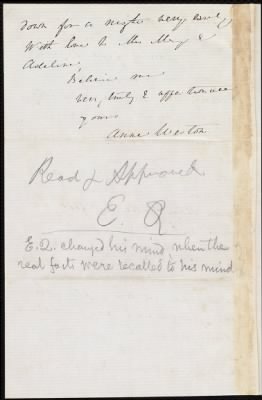 down for a night very soon.
With love to Mrs May &
Adeline,
Believe me
very truly & affectionate
yours
Anne Weston
Read & Approved
E. Q.
E.Q. changed his mind, when the
real facts were recalled to his mind